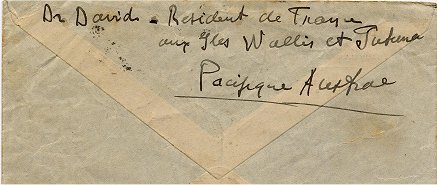 Dr David - Résident de France
aux Iles Wallis et Futuna
Pacifique Australe